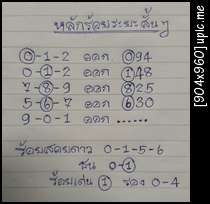 หลักร้อยระยะสั้นๆ
0-1-2 ออก 094
0-1-2 ออก 148
7-8-9 ออก 825
5-6-7 ออก 630
9-0-1 ออก ......
ร้อยสองดาว 0-1-5-6
ชน 0-1
ร้อยเด่น 1 รอง 0-4
[904x960]upic.me